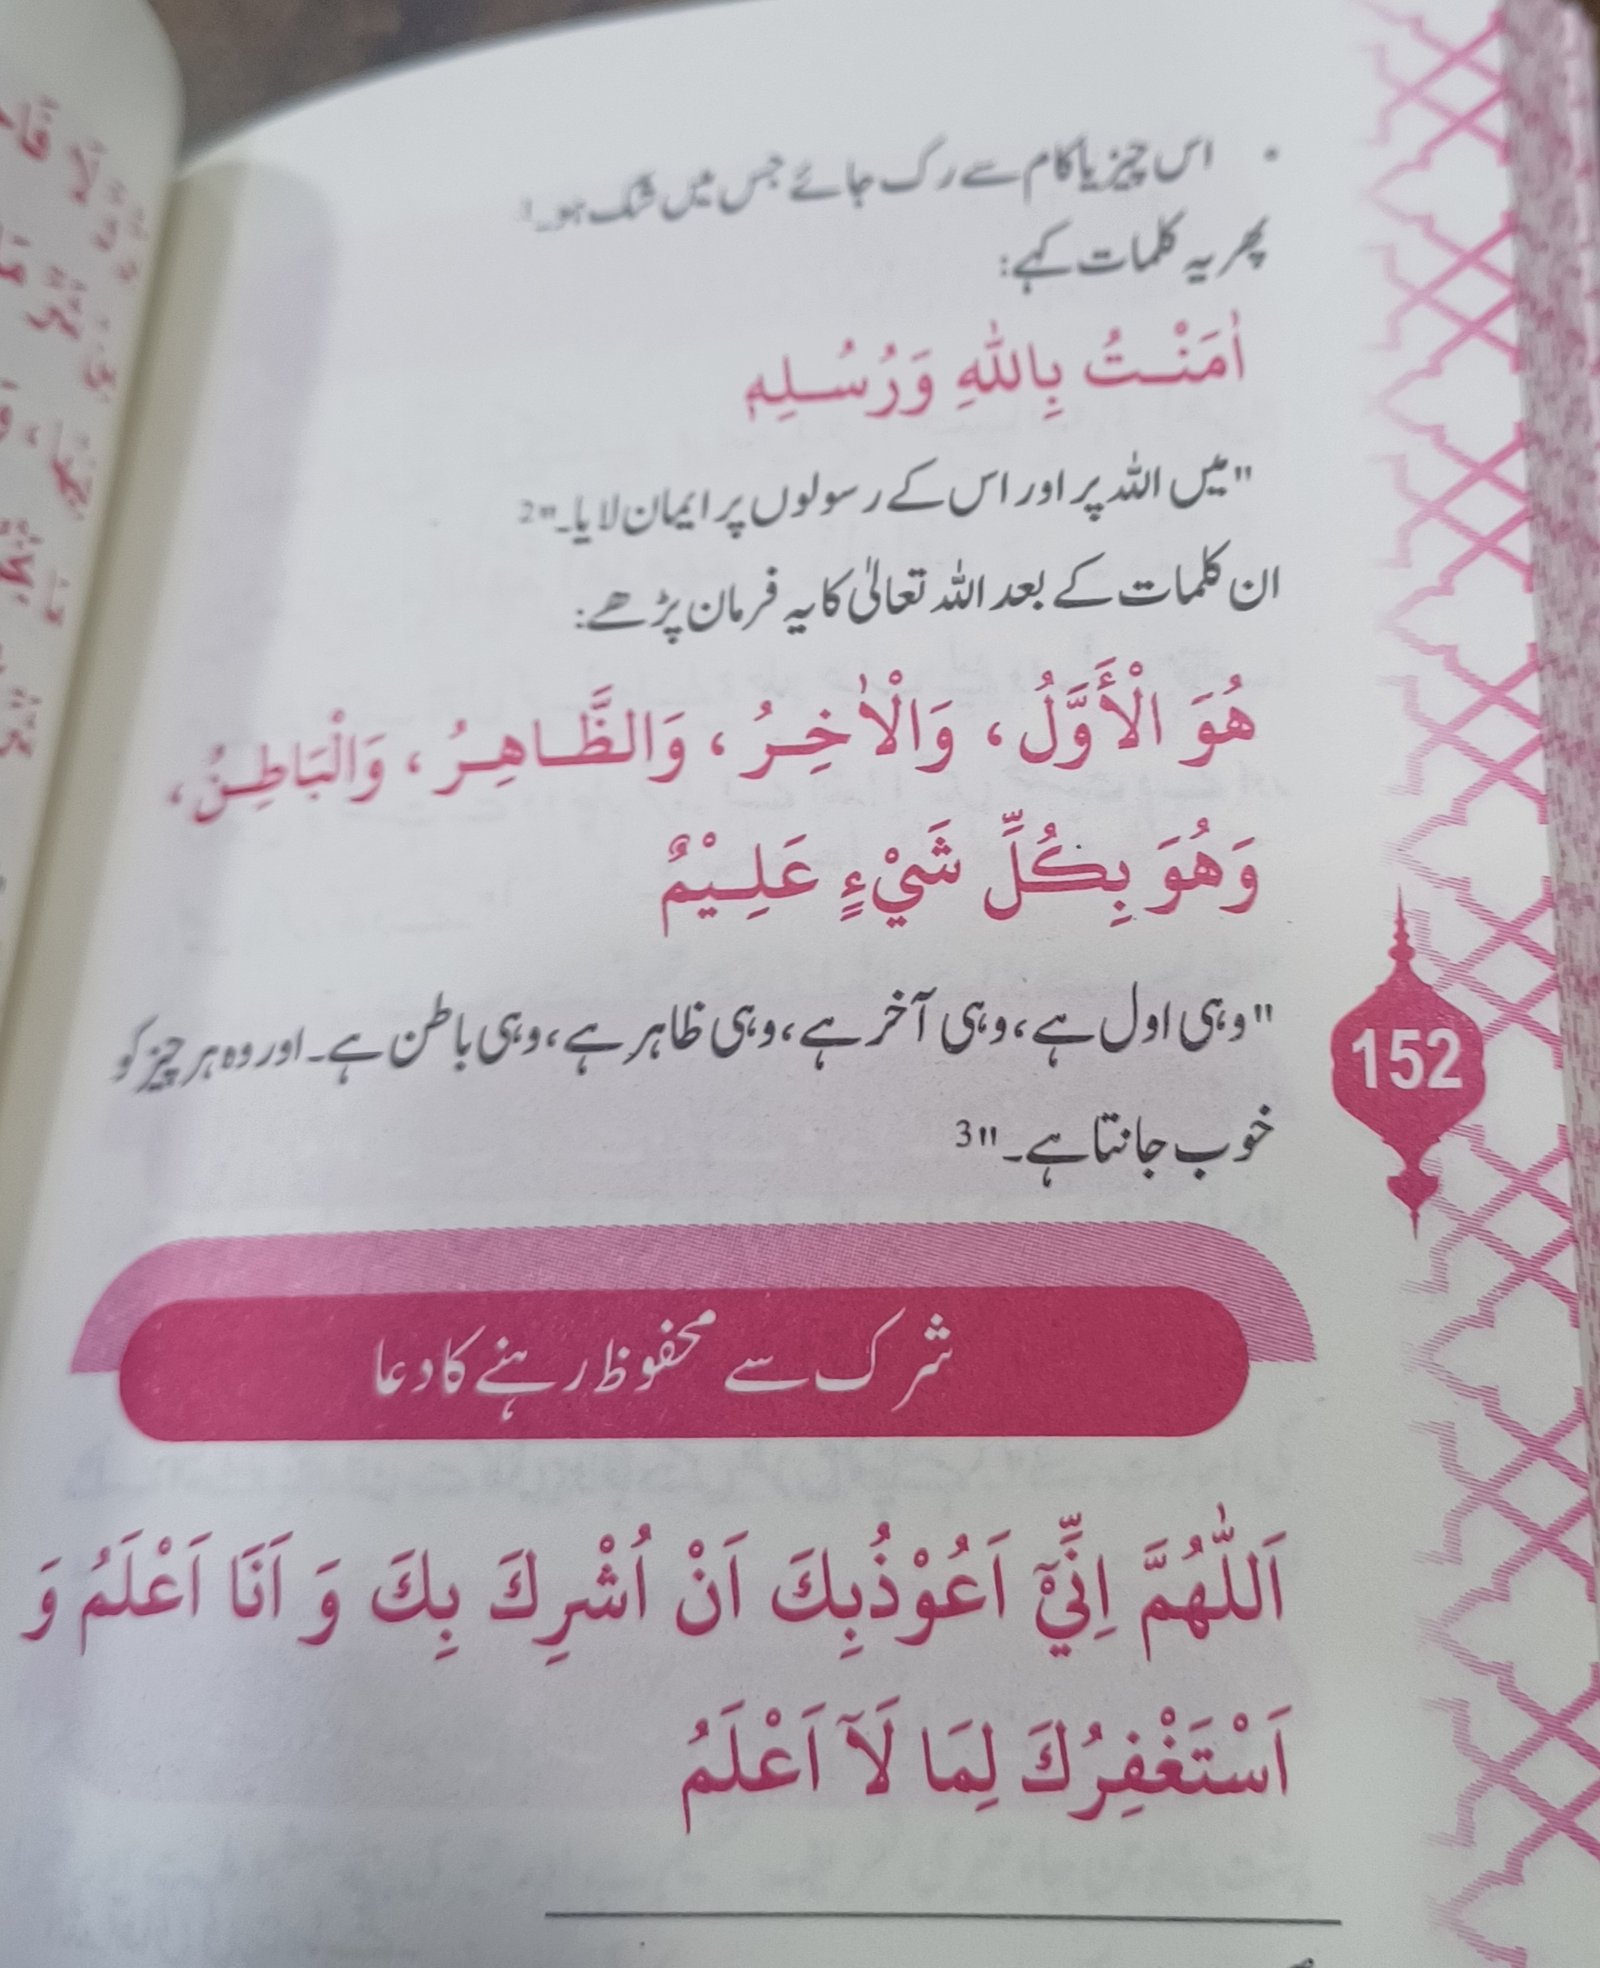 • اس چیز یا کام سے رک جائے جس میں شک ہو۔1
پھر یہ کلمات کہے:
اٰمَنْتُ بِاللّٰهِ وَرُسُلِهٖ
"میں اللہ پر اور اس کے رسولوں پر ایمان لایا۔"2
ان کلمات کے بعد اللہ تعالیٰ کا یہ فرمان پڑھے:
هُوَ الْأَوَّلُ، وَالْاٰخِرُ، وَالظَّاهِرُ، وَالْبَاطِنُ،
وَهُوَ بِكُلِّ شَيْءٍ عَلِيْمٌ
"وہی اول ہے، وہی آخر ہے، وہی ظاہر ہے، وہی باطن ہے۔ اور وہ ہر چیز کو
خوب جانتا ہے۔"3
152
شرک سے محفوظ رہنے کا دعا
اَللّٰهُمَّ اِنِّيْٓ اَعُوْذُبِكَ اَنْ اُشْرِكَ بِكَ وَ اَنَا اَعْلَمُ وَ
اَسْتَغْفِرُكَ لِمَا لَآ اَعْلَمُ